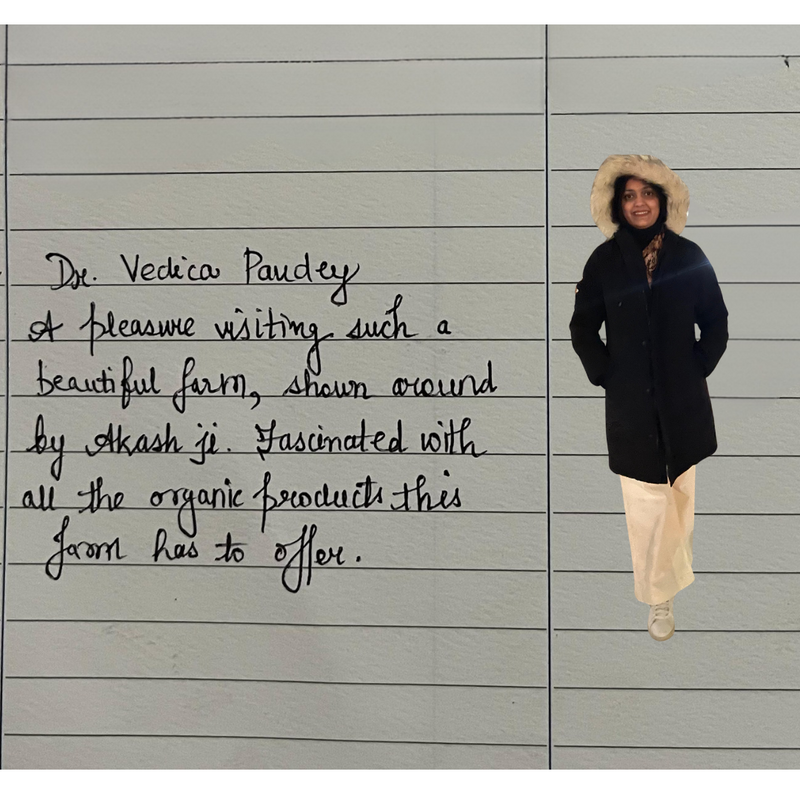 Dr. Vedica Pandey
A pleasure visiting such a
beautiful farm, shown around
by Akash ji. Fascinated with
all the organic products this
farm has to offer.